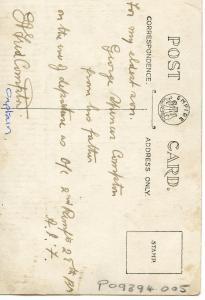 POST CARD.
CORRESPONDENCE.
ADDRESS ONLY.
EMPIRE
STAMP
For my eldest son.
George Spencer Compton
from his father
on the eve of departure as O/C 2nd Reinf's 28th Bn
A.I.F
Compton
Captain
P09394.005